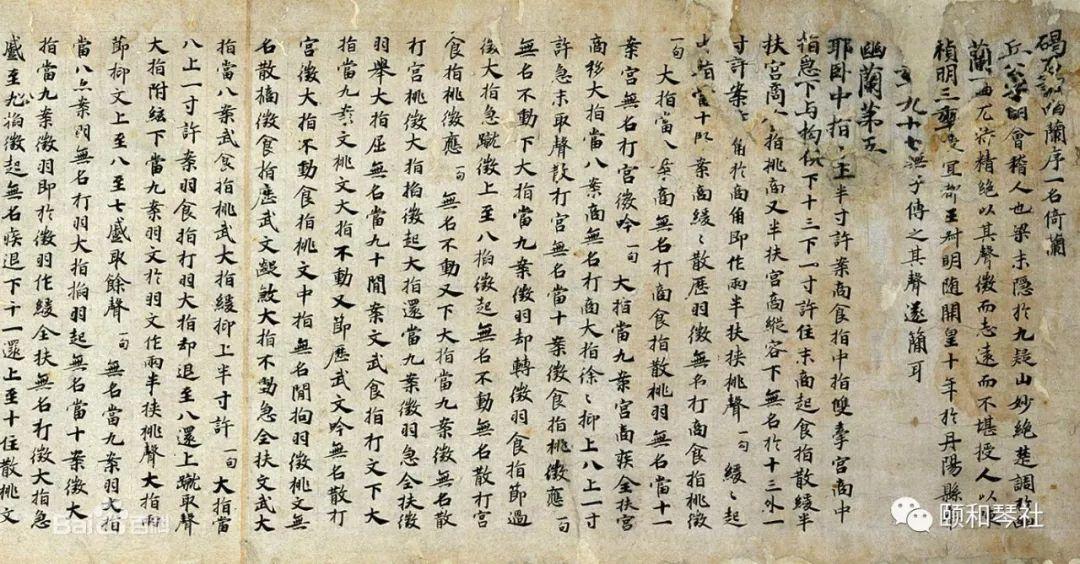 碣石調幽蘭序一名倚蘭
丘公字明會稽人也梁末隱於九疑山妙絕楚調於
蘭一曲尤特精絕以其聲微而志遠而不堪授人以
禎明三年授宜都王叔明随開皇十年於丹陽縣卒
年九十七無子傳之其聲遂簡耳
幽蘭第五
耶卧中指上半寸許案商食指中指雙牽宮商中
指急下与拘俱下十三下一寸許住末商起食指散緩半
扶宮商食指挑商又半扶宮商縱容下無名於十三外一
寸許案角於商角即作兩半扶挾挑聲 一句 緩々起
指當十案商緩々散歷羽徵無名打商食指挑徵
一句 大指當八案商無名打商食指散挑羽無名當十一
案宮無名打宮徵吟 一句 大指當九案宮商疾全扶宮
商移大指當八案商無名打商大指徐々抑上八上一寸
許急末取聲散打宮無名當十案徵食指挑徵應 一句
無名不動下大指當九案徵羽却轉徵羽食指節過
徵大指急蹴徵上至八掐徵起無名不動無名散打宮
食指挑徵應 一句 無名不動又下大指當九案徵無名散
打宮桃徵大指掐徵起大指還當九案徵羽急全扶徵
羽舉大指屈無名當九十間案文武食指打文下大
指當九案文桃文大指不動又節歷武文吟無名散打
宮徵大指不動食指桃文中指無名間拘羽徵桃文無
名散摘徵食指歷武文齪敠大指不動急全扶文武大
指當八案武食指桃武大指緩抑上半寸許 一句 大指當
八上一寸許案羽食指打羽大指却退至八還上蹴取聲
大指附絃下當九案羽文於羽文作兩半挾桃聲大指兩
節抑文上至八至七蹙取餘聲 一句 無名當九案羽大指
當八案羽無名打羽大指掐羽起無名當十案徵大
指當九案徵羽即於徵羽作緩全扶無名打徵大指急
蹙至八掐徵起無名疾退下十一還上至十住散桃文
Baidu百科
颐和琴社